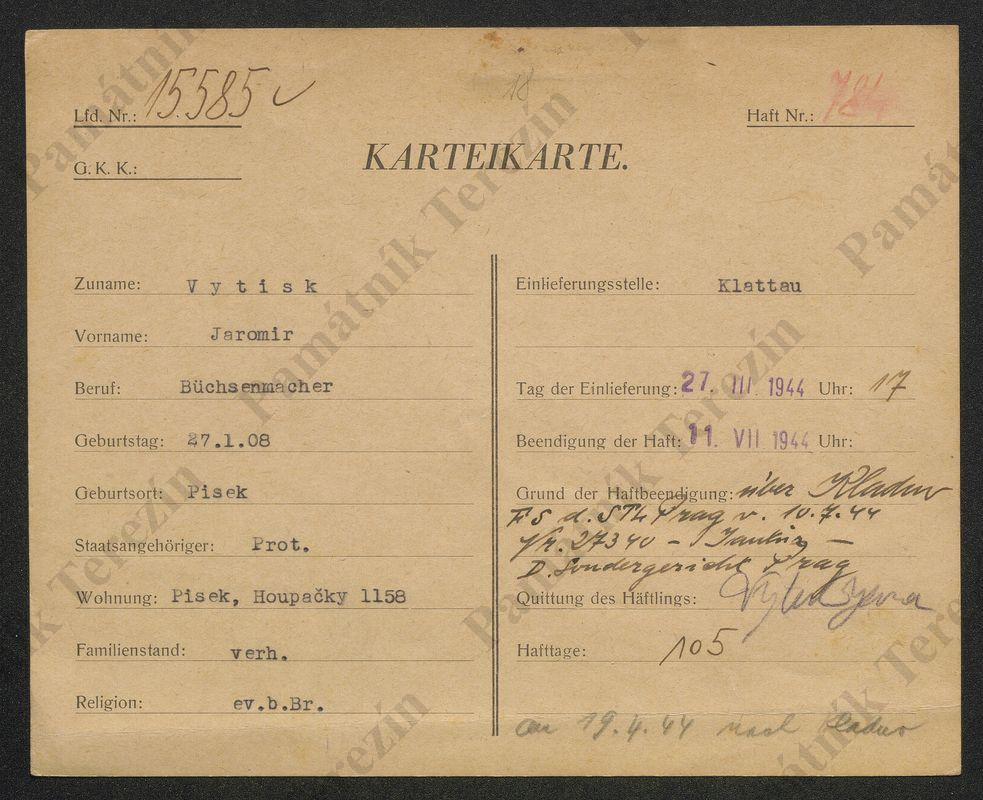 15.585
18
Lfd. Nr.:
Haft Nr.: 784
G. K. K.:
KARTEIKARTE.
Zuname: Vytisk
Vorname: Jaromir
Beruf: Büchsenmacher
Geburtstag: 27.1.08
Geburtsort: Pisek
Staatsangehöriger: Prot.
Wohnung: Pisek, Houpačky 1158
Familienstand: verh.
Religion: ev.b.Br.
Einlieferungsstelle: Klattau
Tag der Einlieferung: 27. III 1944 Uhr: 17
Beendigung der Haft: 11. VII 1944 Uhr:
Grund der Haftbeendigung: über Kladno
FS d. STL Prag v. 10.7.44
Nr. 27340 –
D. Sondergericht Prag
Quittung des Häftlings:
Hafttage: 105
am 19.4.44 nach Kladno
Památník Terezín